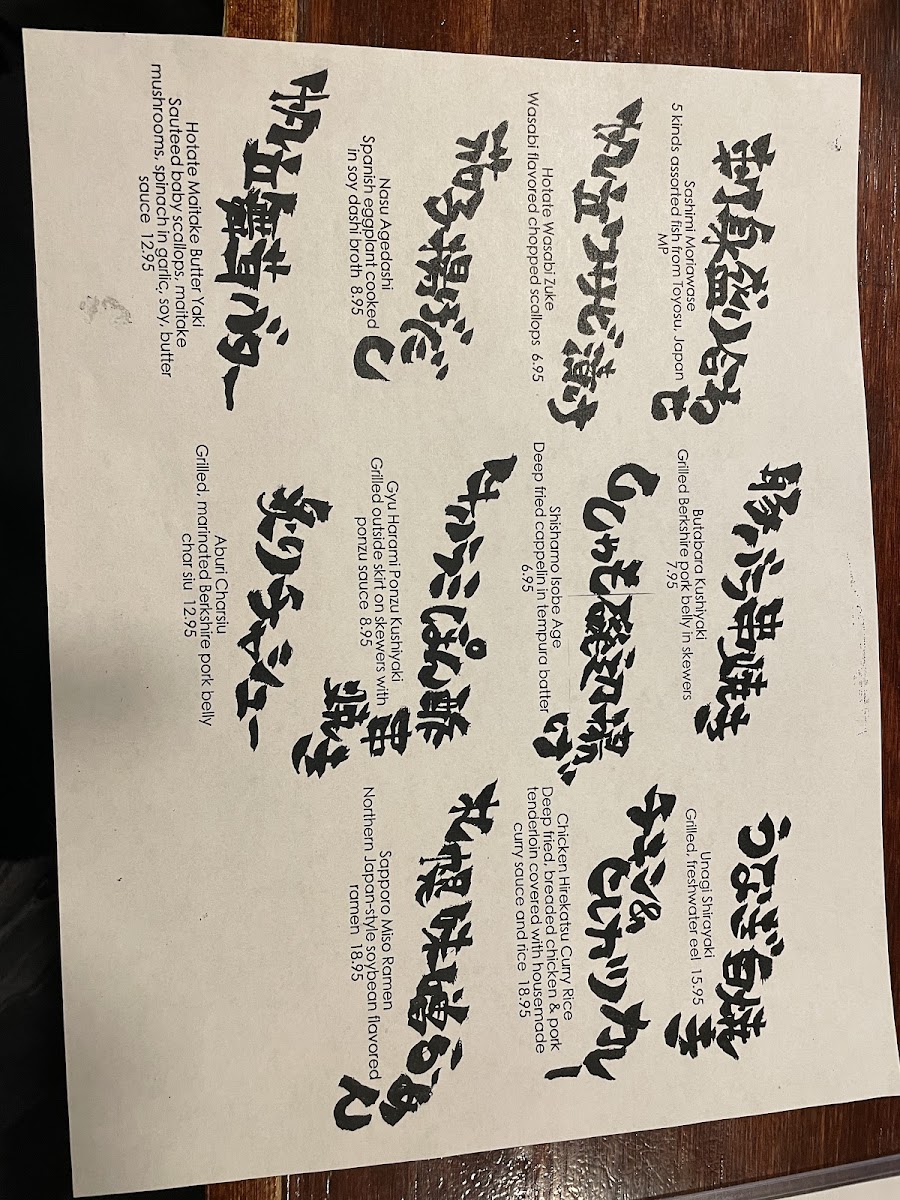 刺身盛り合わ
せ
Sashimi Moriawase
5 kinds assorted fish from Toyosu, Japan
MP
帆立ワサビ漬け
Hotate Wasabi Zuke
Wasabi flavored chopped scallops 6.95
茄子揚げだ
し
Nasu Agedashi
Spanish eggplant cooked
in soy dashi broth 8.95
帆立舞茸バター
Hotate Maitake Butter Yaki
Sauteed baby scallops, maitake
mushrooms, spinach in garlic, soy, butter
sauce 12.95
豚バラ串焼き
Butabara Kushiyaki
Grilled Berkshire pork belly in skewers
7.95
ししゃも磯辺揚
げ
Shishamo Isobe Age
Deep fried cappelin in tempura batter
6.95
牛ハラミぽん酢
串
焼き
Gyu Harami Ponzu Kushiyaki
Grilled outside skirt on skewers with
ponzu sauce 8.95
炙りチャシュー
Aburi Charsiu
Grilled, marinated Berkshire pork belly
char siu 12.95
うなぎ白焼
き
Unagi Shirayaki
Grilled, freshwater eel 15.95
チキン&
ヒレカツカレー
Chicken Hirekatsu Curry Rice
Deep fried, breaded chicken & pork
tenderloin covered with housemade
curry sauce and rice 18.95
札幌味噌らー
めん
Sapporo Miso Ramen
Northern Japan-style soybean flavored
ramen 18.95